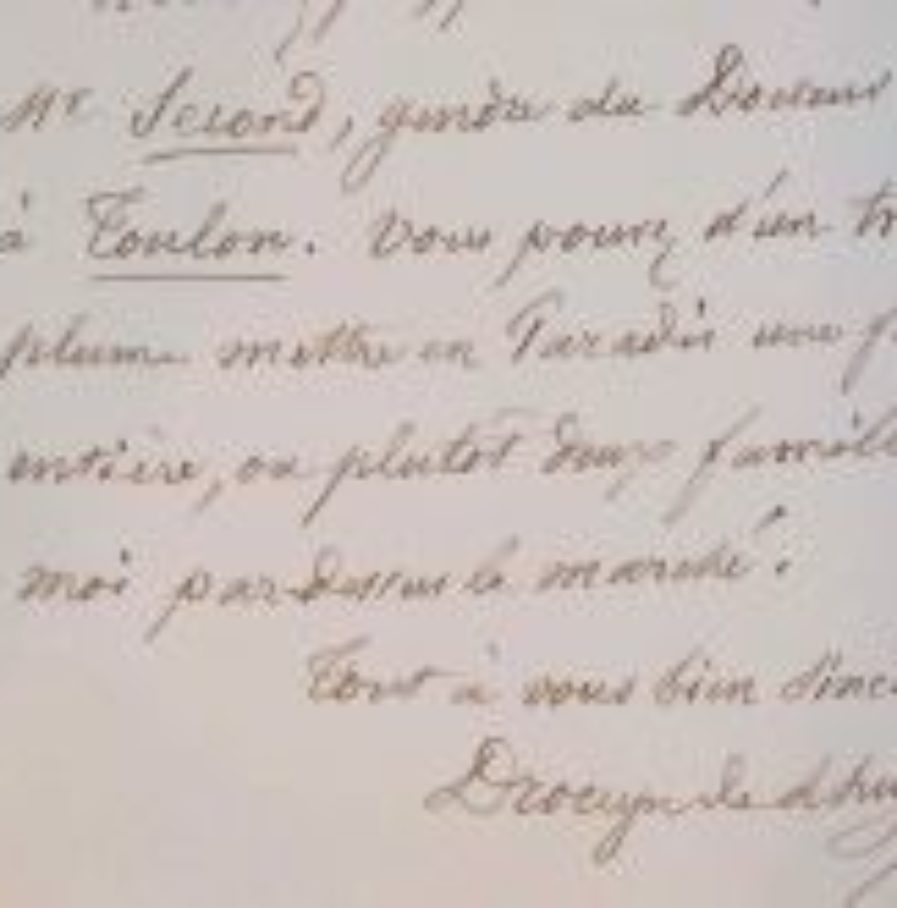 Mr Second, gendre du Doyen
à Toulon. Vous pouvez d'un
plume mettre en Paradis une
entière, ou plutôt deux famill
moi pardessus le marché.
Tout à vous bien sincè
Drouyn de Lhuy